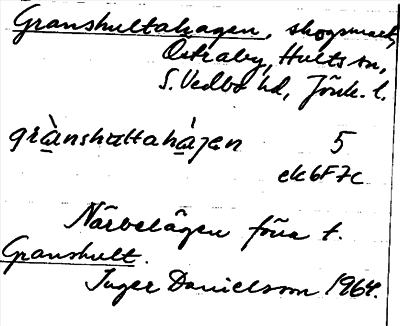 Granshultahagen, skogsmark,
Östraby, Hults sn,
S. Vedbo hd, Jönk. l.
grànshultahá̱gen 5
ek 6F7c
Närbelägen förut t.
Granshult.
Inger Danielsson 1964.